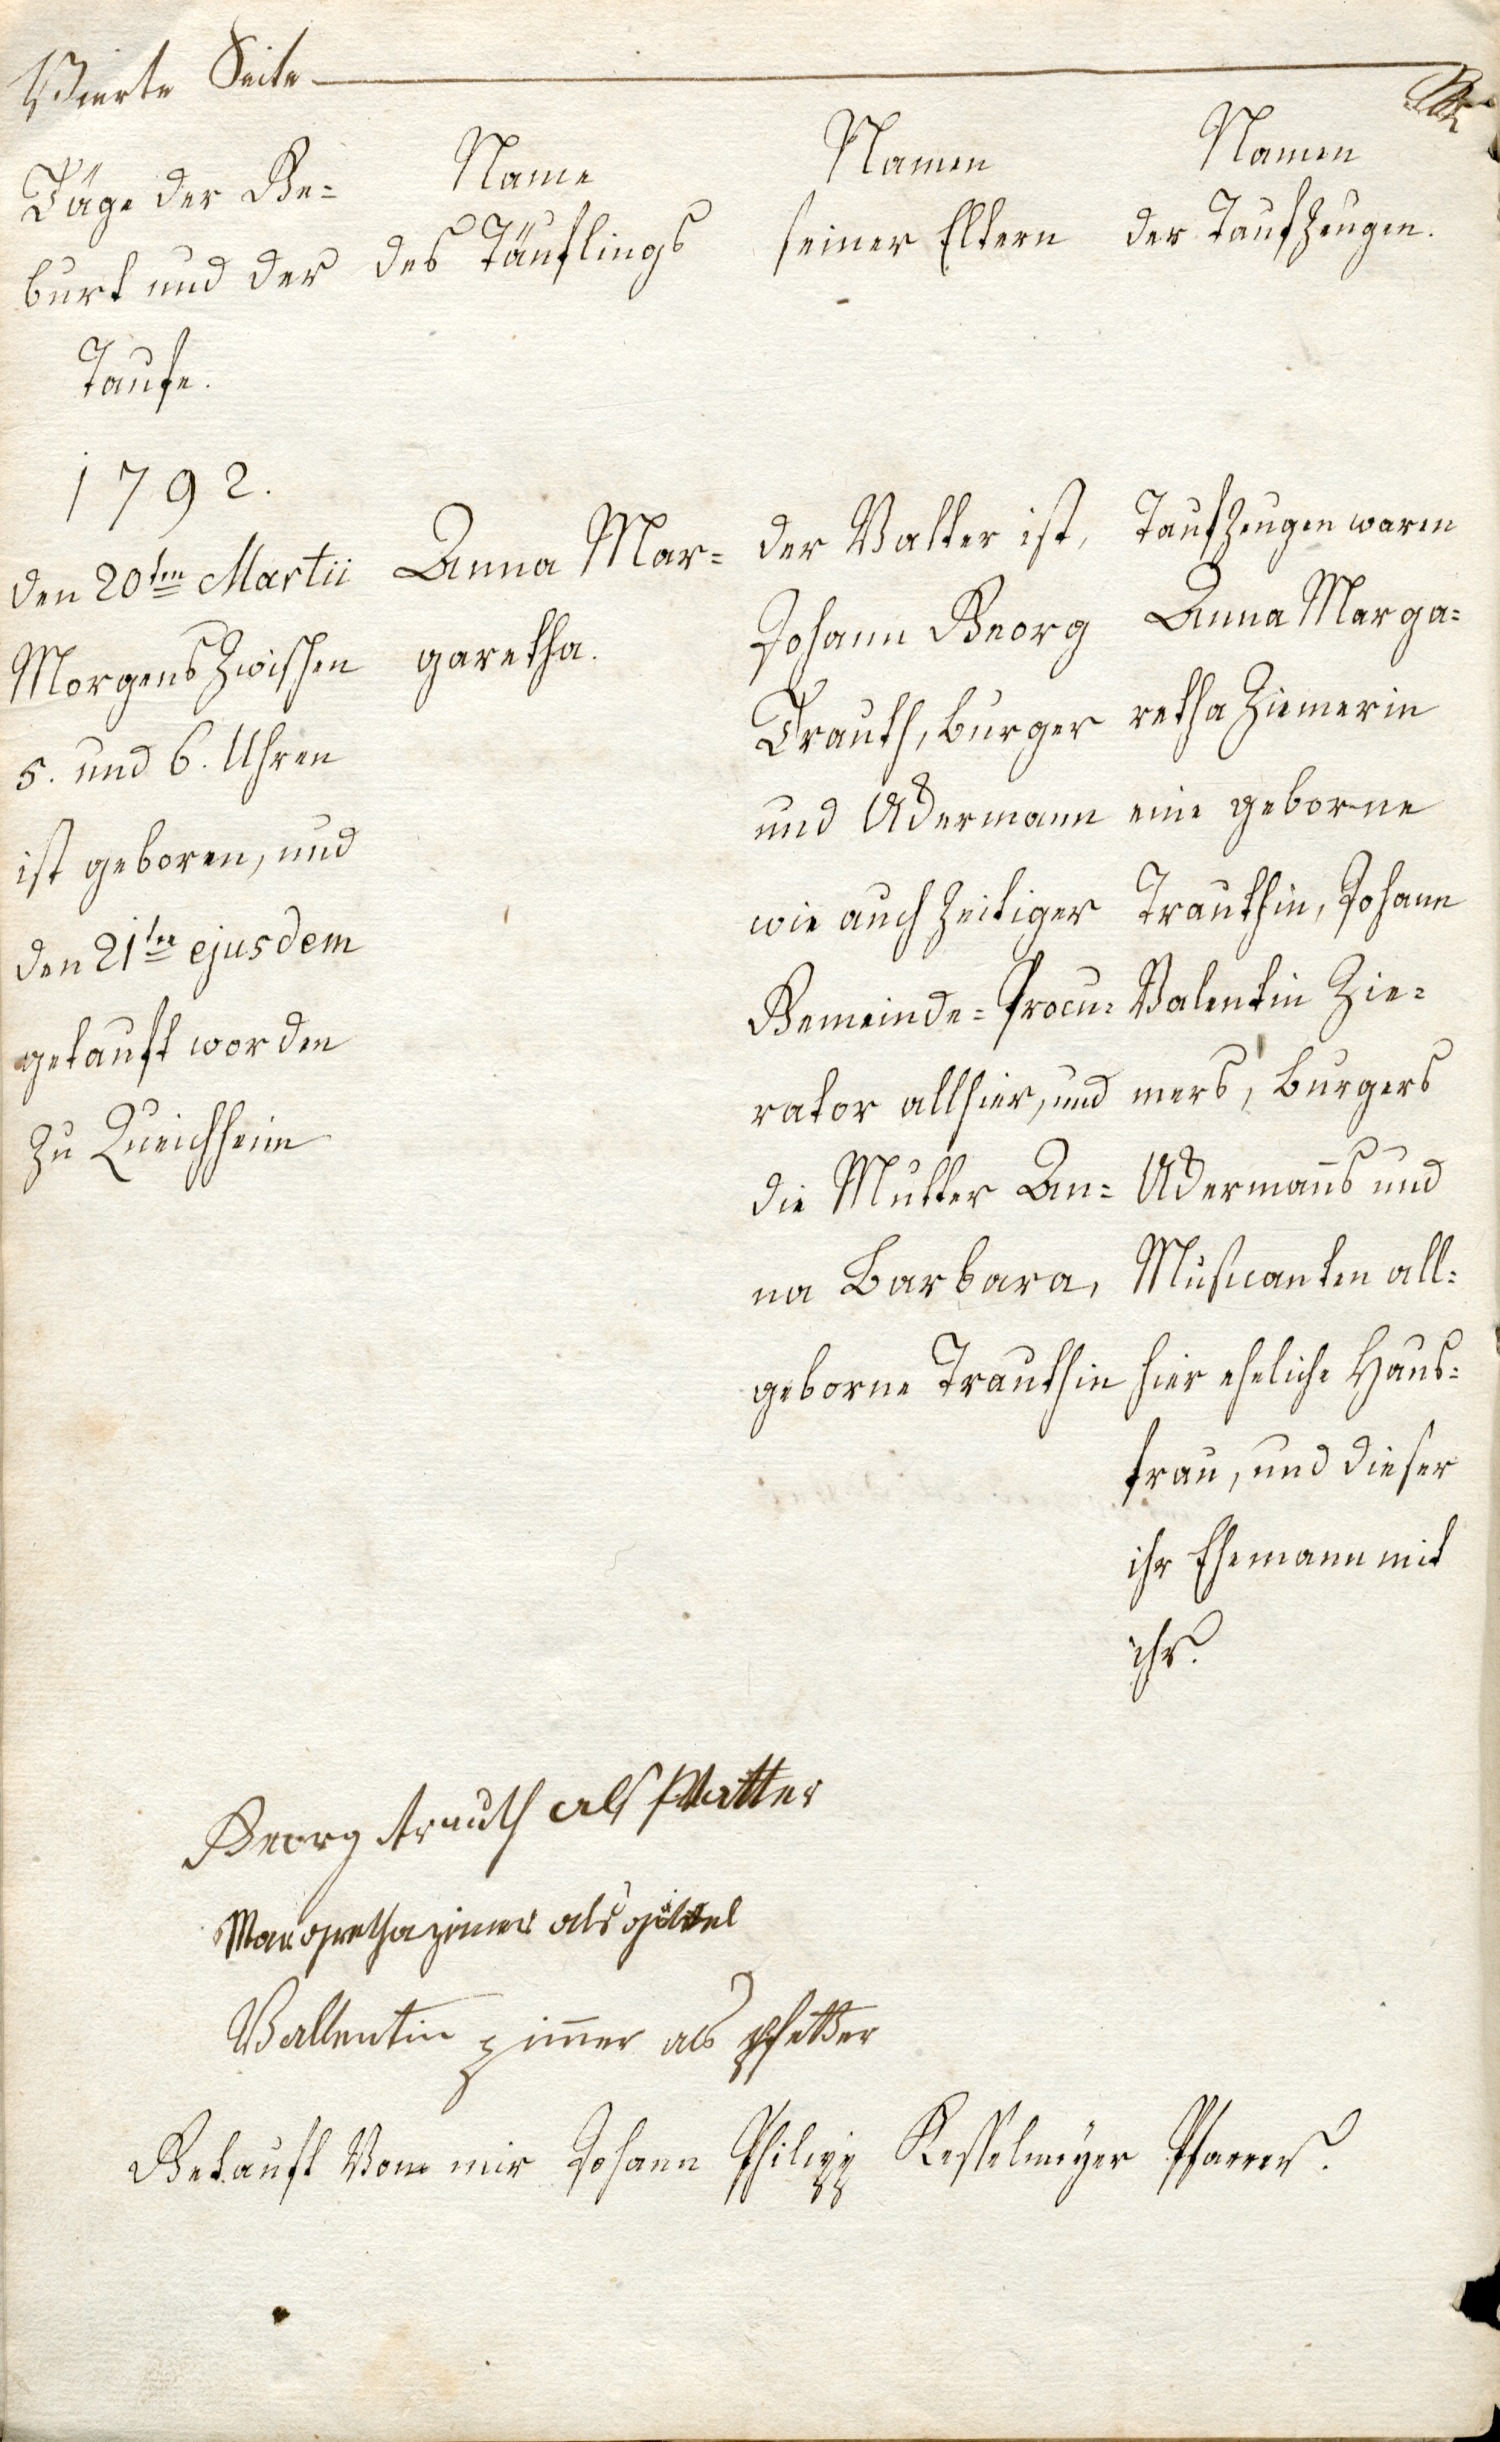 Vierte Seite
Täge der Ge=
burt und der
Taufe.
Name
des Täuflings
Namen
seiner Eltern
Namen
der Taufzeugen.
1792.
den 20ten Martii
Morgens zwischen
5. und 6. Uhren
ist geboren, und
den 21ten ejusdem
getauft worden
zu Queichheim
Anna Mar=
garetha.
der Vatter ist,
Johann Georg
Trauth, burger
und Ackermann
wie auch zeitiger
Gemeinde=Procu=
rator allhier, und
die Mutter An=
na Barbara,
geborne Trauthin
Taufzeugen waren
Anna Marga=
retha Ziemerin
eine geborne
Trauthin, Johann
Valentin Zie=
mers, burgers
Ackermans und
Musicanten all=
hier eheliche Haus=
frau, und dieser
ihr Ehemann mit
ihr.
Georg trauth als Vatter
Margretha zimer als göttel
Vallentin zimer als pfetter
Getauft Von mir Johann Philipp Kesselmeyer Pfarrer.